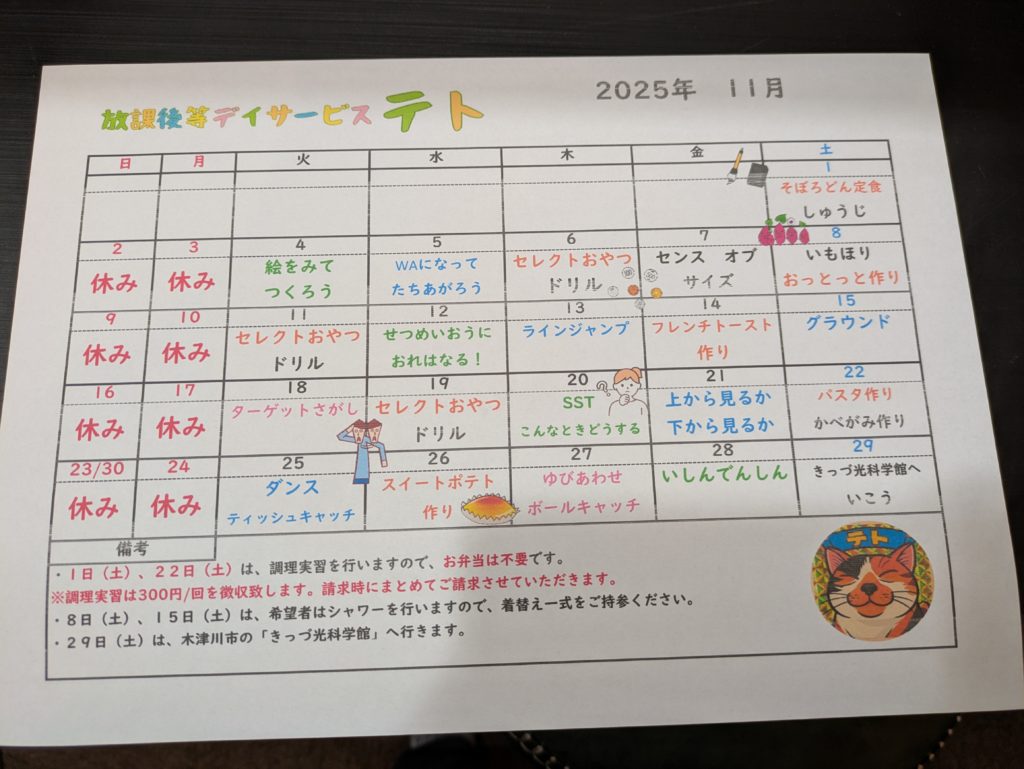 放課後等デイサービス テト
2025年 11月
日 月 火 水 木 金 土
1
そぼろどん定食
しゅうじ
2
休み
3
休み
4
絵をみて
つくろう
5
WAになって
たちあがろう
6
セレクトおやつ
ドリル
7
センス オブ
サイズ
8
いもほり
おっとっと作り
9
休み
10
休み
11
セレクトおやつ
ドリル
12
せつめいおうに
おれはなる！
13
ラインジャンプ
14
フレンチトースト
作り
15
グラウンド
16
休み
17
休み
18
ターゲットさがし
19
セレクトおやつ
ドリル
20
SST
こんなときどうする
21
上から見るか
下から見るか
22
パスタ作り
かべがみ作り
23/30
休み
24
休み
25
ダンス
ティッシュキャッチ
26
スイートポテト
作り
27
ゆびあわせ
ボールキャッチ
28
いしんでんしん
29
きっづ光科学館へ
いこう
備考
・1日（土）、22日（土）は、調理実習を行いますので、お弁当は不要です。
※調理実習は300円/回を徴収致します。請求時にまとめてご請求させていただきます。
・8日（土）、15日（土）は、希望者はシャワーを行いますので、着替え一式をご持参ください。
・29日（土）は、木津川市の「きっづ光科学館」へ行きます。
テト